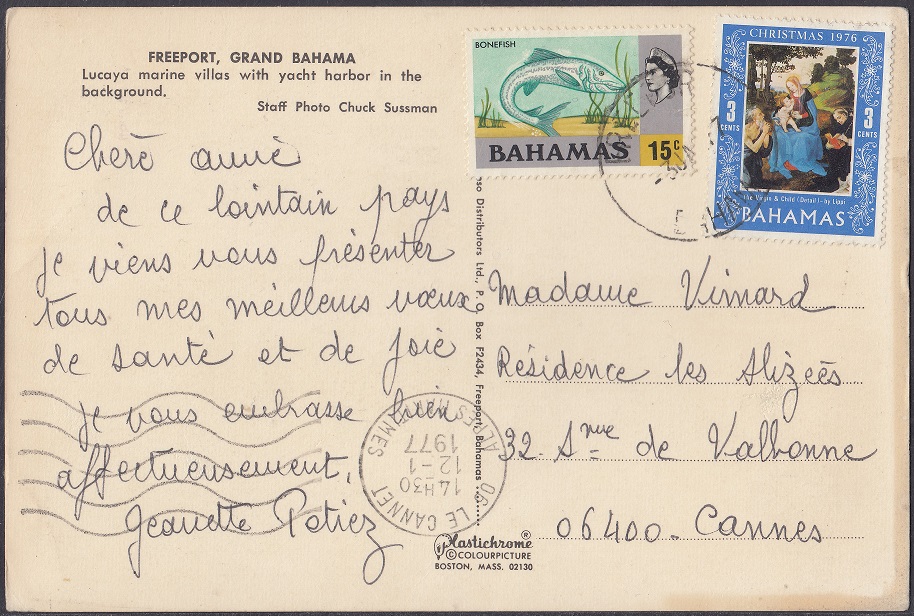 FREEPORT, GRAND BAHAMA
Lucaya marine villas with yacht harbor in the
background.
Staff Photo Chuck Sussman
Chère amie
de ce lointain pays
je viens vous présenter
tous mes meilleurs vœux
de santé et de joie
je vous embrasse bien
affectueusement,
Jeanette Potiez
BONEFISH
BAHAMAS 15c
CHRISTMAS 1976
3 CENTS
3 CENTS
The Virgin & Child (Detail) - by Lippi
BAHAMAS
Distributors Ltd., P. O. Box F2434, Freeport, Bahamas
Madame Vimard
Résidence les Alizéés
32. Anue de Valbonne
06400. Cannes
06 LE CANNET
14H30
12-1
1977
ALPES MARITIMES
Plastichrome®
© COLOURPICTURE
BOSTON, MASS. 02130